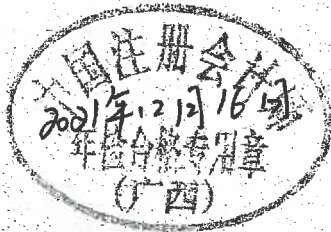 中国注册会计师
2021年12月16日
年检合格专用章
(广西)